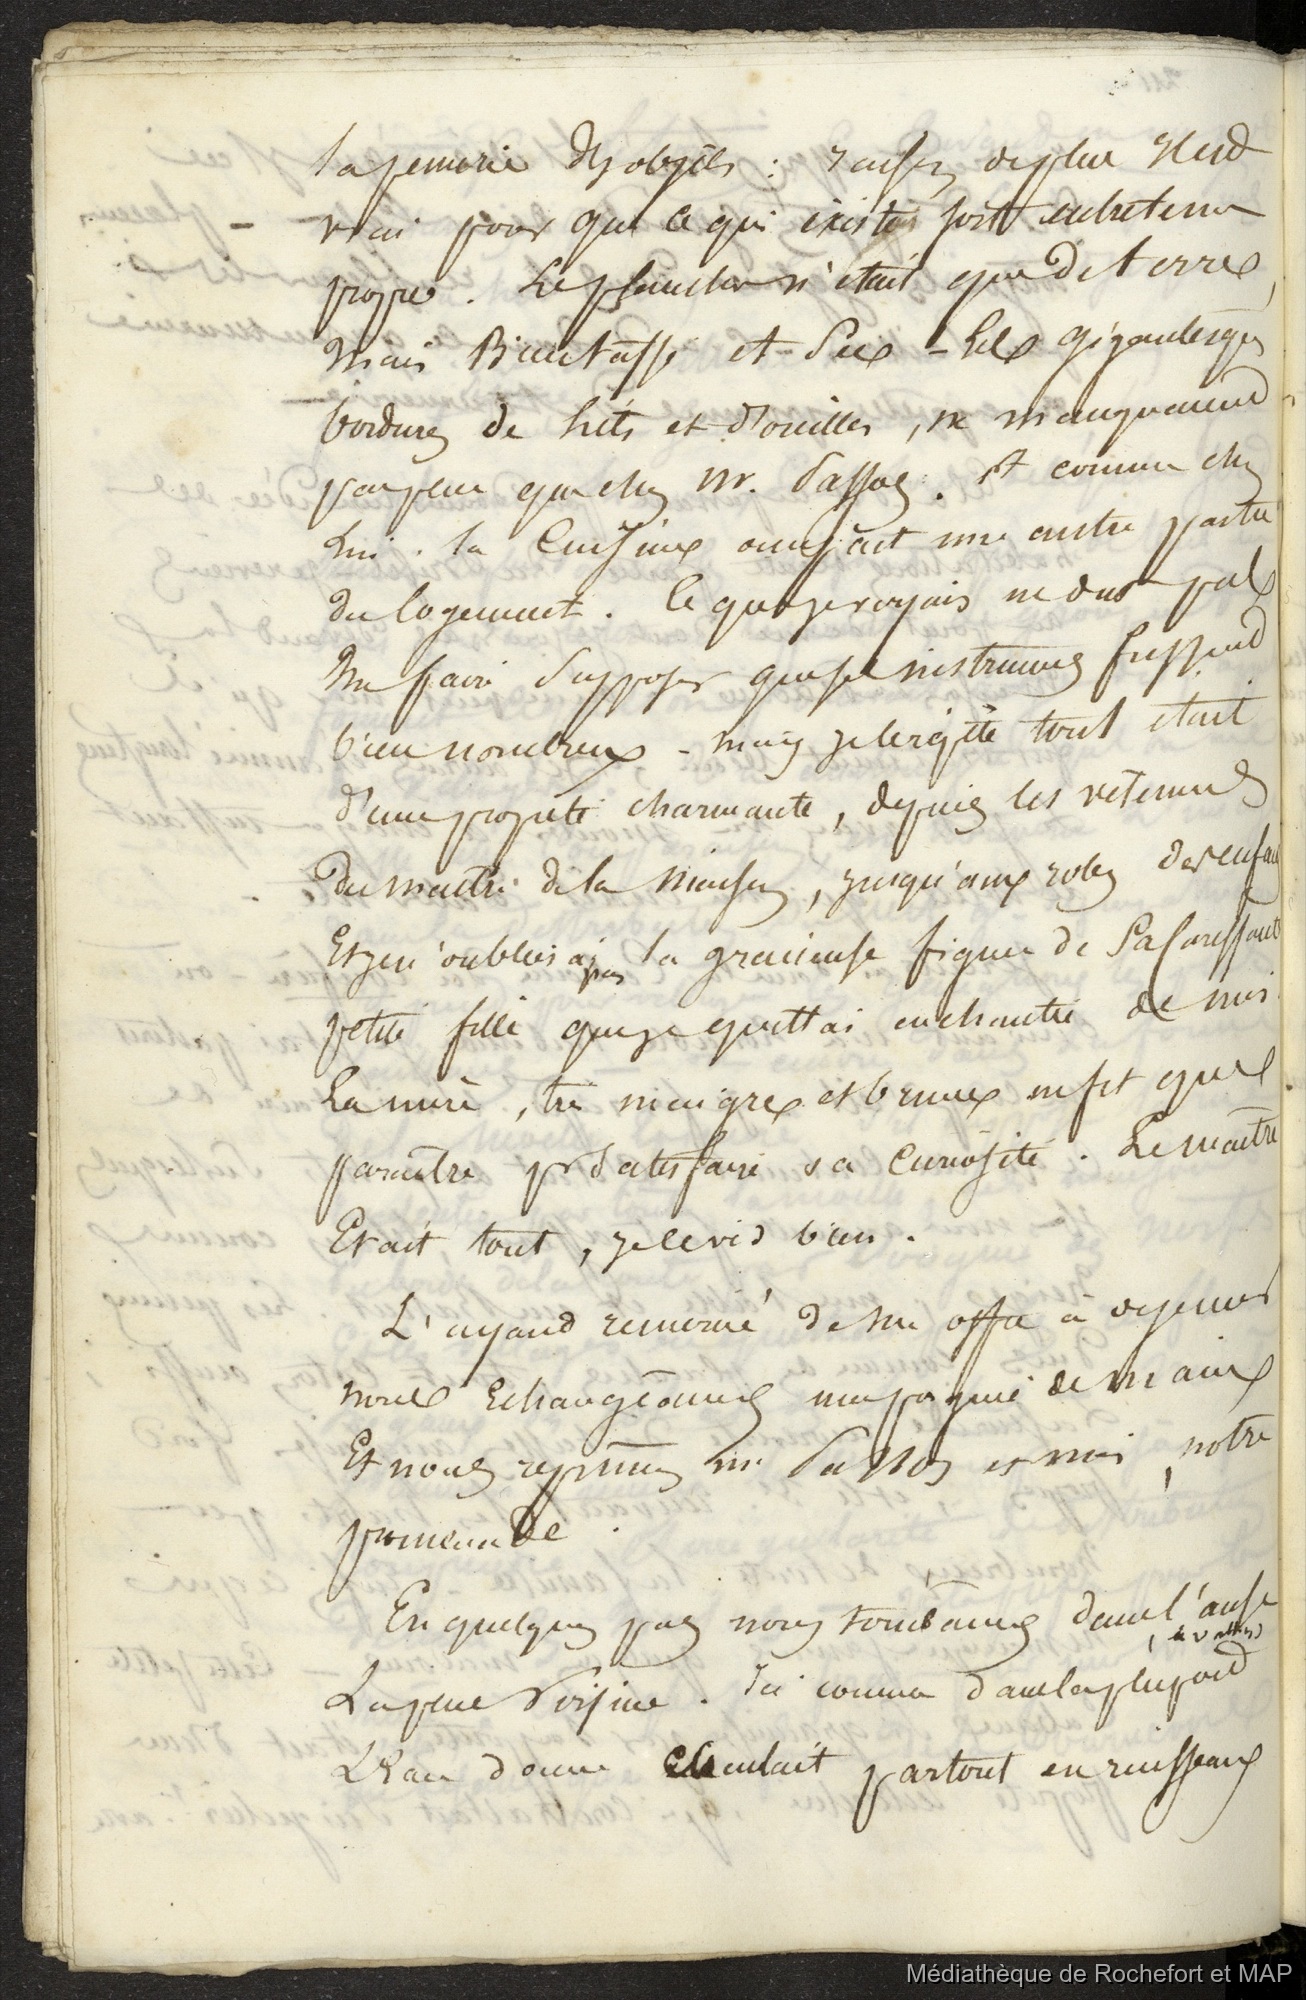 la penurie des objets : raison de plus Her
vrai pour que ce qui existe soit entretenu
propre. Le plancher n'était que de terre,
mais Bien tassé et Sec - Les gigantesques
bordures de lits et d'oreillers, ne manquaient
pas plus que chez Mr. Passos. Et comme chez
Lui. la Cuisine occupait une autre partie
du logement. Ce que je voyais ne dut pas
me faire Supposer que ses instruments fussent
bien nombreux - mais je le répète tout était
d'une propreté charmante, depuis les vêtements
du maître de la maison, jusqu'aux robes des enfants
Et je n'oubliérai pas la gracieuse figure de Sa caressante
petite fille que je quittai enchantée de moi.
La mère, très maigre et brune ne fit que
paraître pr Satisfaire sa Curiosité. Le maître
Etait tout, je le vis bien.
L'ayant remercié de son offre à déjeuner
nous Echangeâmes une poignée de mains
Et nous reprîmes Mr Passos et moi, notre
promenade.
En quelques pas nous tombâmes dans l'anse
la vallée
La plus Voisine. Ici comme dans la plupart
L'Eau douce coulait partout en ruisseaux
Médiathèque de Rochefort et MAP